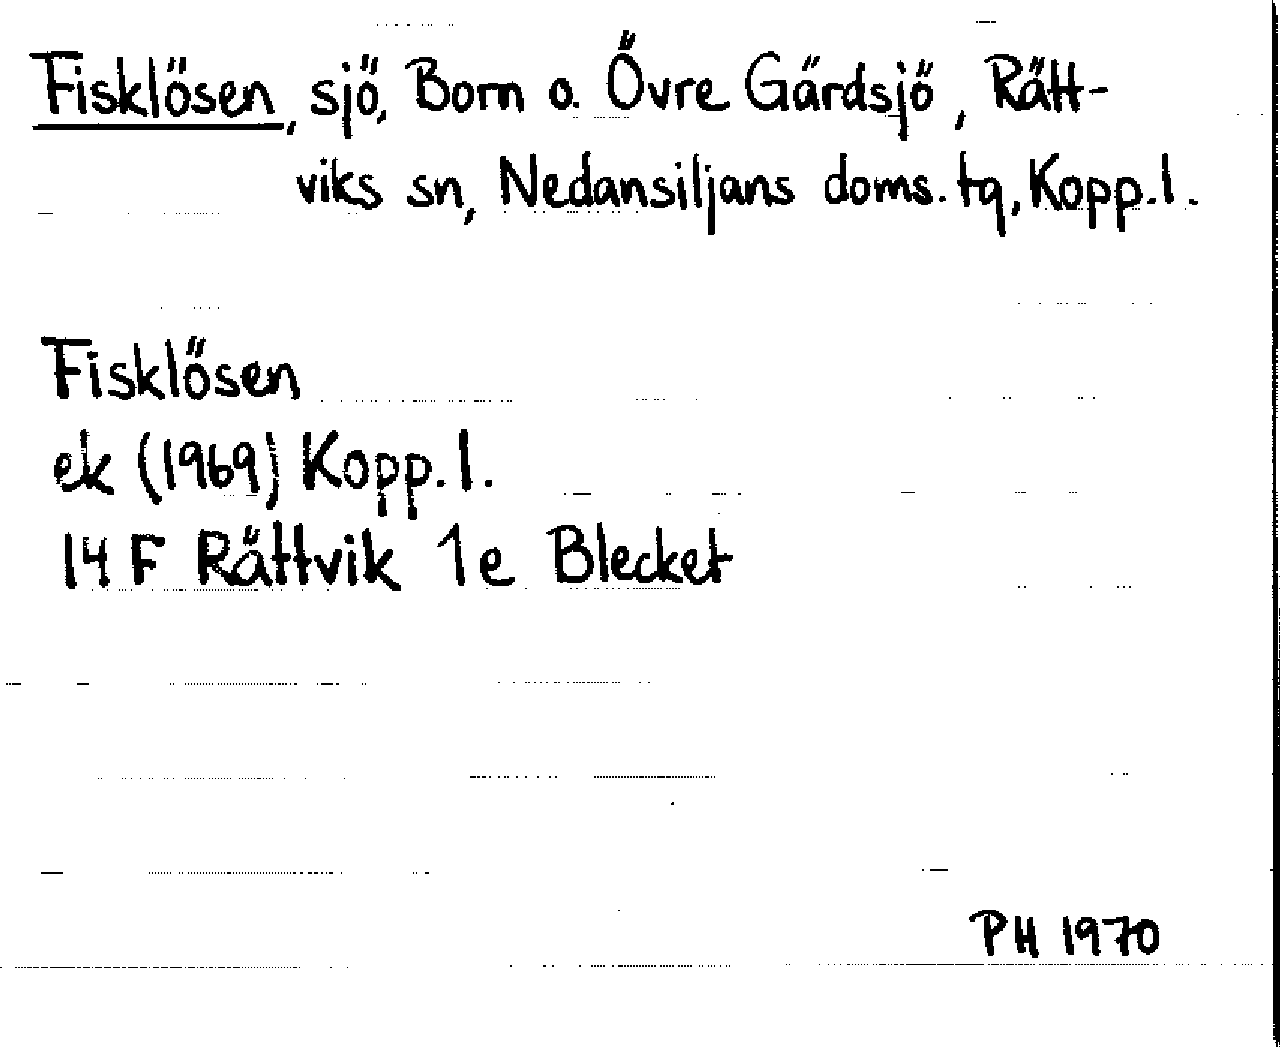 Fisklösen, sjö, Born o. Övre Gärdsjö, Rätt-
viks sn, Nedansiljans doms. tg, Kopp.l.
Fisklösen
ek (1969) Kopp.l.
14 F Rättvik 1e Blecket
PH 1970